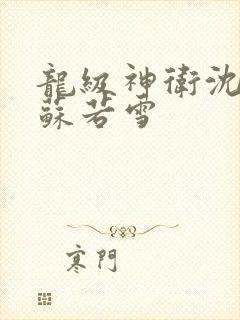 龍級神衛沈
蘇若雪
寒門